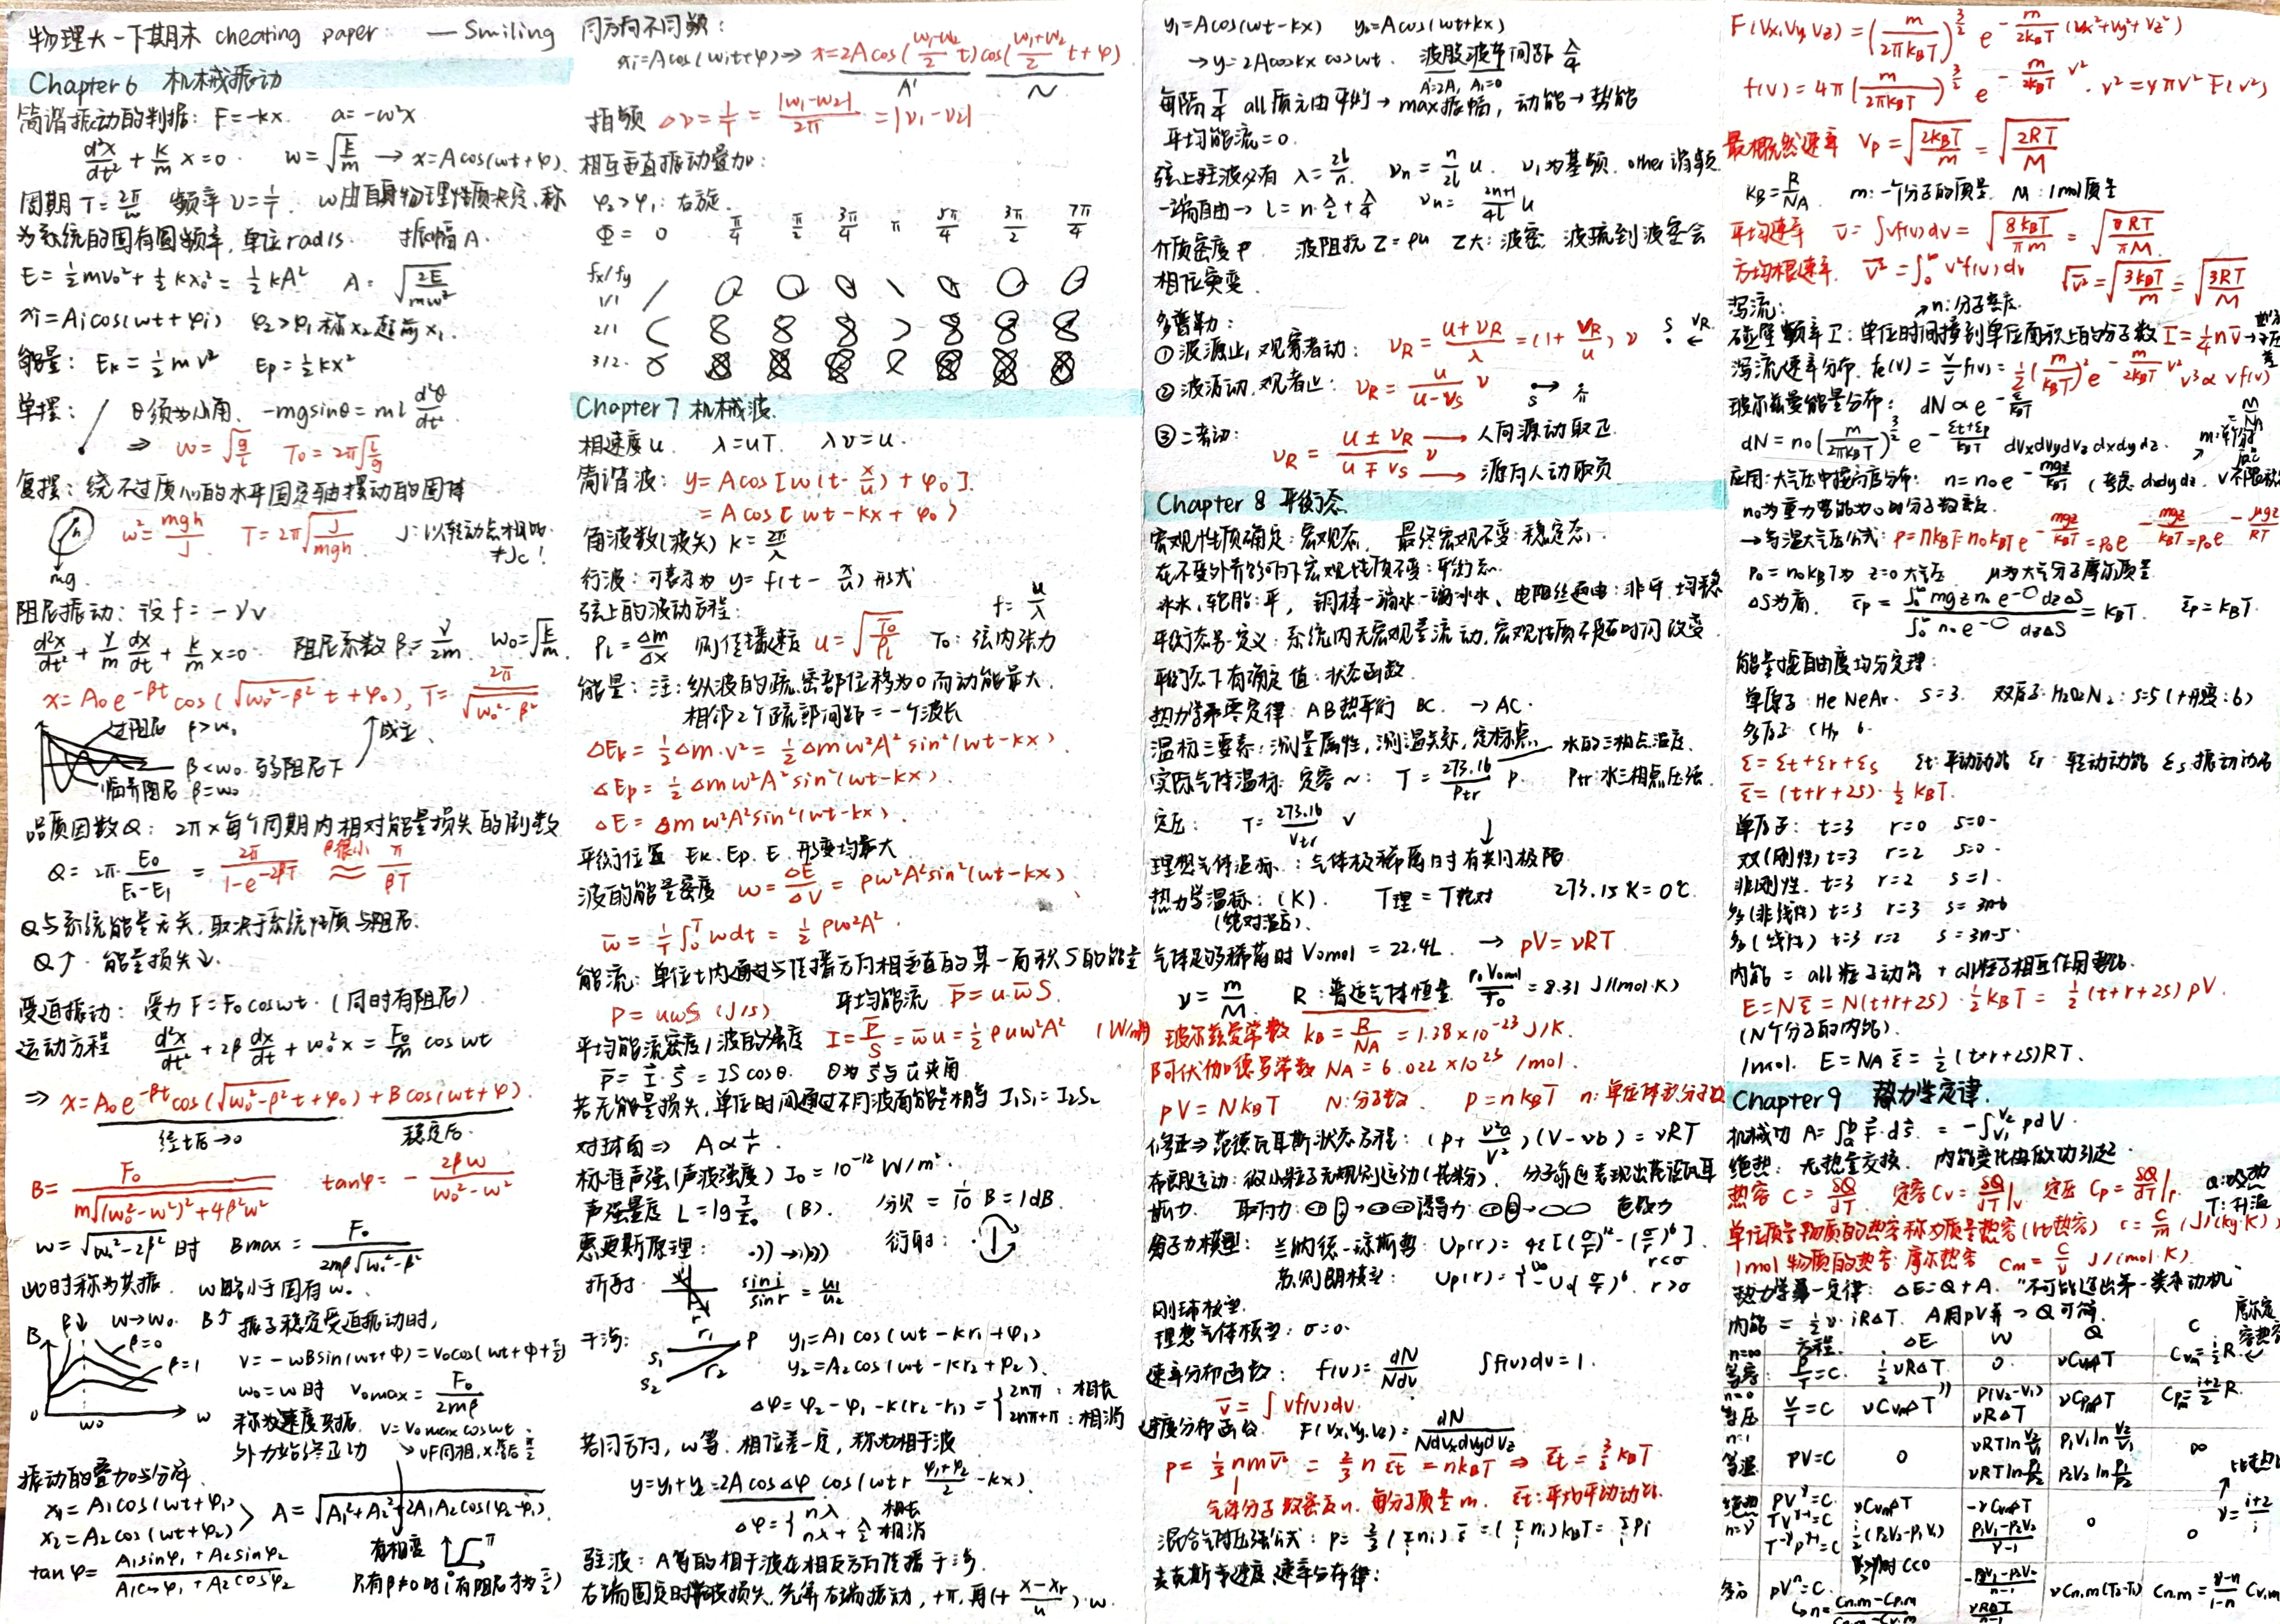 物理大一下期末 cheating paper —— Smiling
Chapter 6 机械振动
简谐振动的判据: F=-kx. a=-ω²x
d²x/dt² + k/m x=0. ω=√(k/m) → x=Acos(ωt+φ).
周期 T=2π/ω 频率 ν=1/T. ω由自身物理性质决定,称
为系统的固有圆频率,单位rad/s. 振幅A.
E=½mv₀²+½kx₀²=½kA² A=√(2E/mω²)
xᵢ=Aᵢcos(ωt+φᵢ) φ₂>φ₁称x₂超前x₁.
能量: Eₖ=½mv² Eₚ=½kx²
单摆: θ须为小角. -mgsinθ=ml d²θ/dt²
⇒ ω=√(g/l) T₀=2π√(l/g)
复摆: 绕不过质心的水平固定轴摆动的固体
h ω²=mgh/J T=2π√(J/mgh) J:以转动点相比
≠Jc!
mg.
阻尼振动: 设 f=-γv
d²x/dt² + γ/m dx/dt + k/m x=0 阻尼系数β=γ/2m. ω₀=√(k/m).
x=A₀e^(-βt) cos(√(ω₀²-β²) t+φ₀), T=2π/√(ω₀²-β²)
过阻尼 β>ω₀ ↑成立.
β<ω₀ 弱阻尼下
临界阻尼 β=ω₀
品质因数Q: 2π×每个周期内相对能量损失的倒数
Q=2π·E₀/(E₀-E₁) = 2π/(1-e^(-2βT)) ≈(β很小) π/βT
Q与系统能量无关,取决于系统性质与阻尼.
Q↑. 能量损失↓.
受迫振动: 受力 F=F₀cosωt. (同时有阻尼)
运动方程 d²x/dt² + 2β dx/dt + ω₀²x = F₀/m cosωt
⇒ x=A₀e^(-βt)cos(√(ω₀²-β²)t+φ₀)+Bcos(ωt+φ).
经t后→0 稳定后.
B= F₀/(m√((ω₀²-ω²)²+4β²ω²)) tanφ=- 2βω/(ω₀²-ω²)
ω=√(ω₀²-2β²)时 Bmax= F₀/(2mβ√(ω₀²-β²))
此时称为共振. ω略小于固有ω₀.
β↓ ω→ω₀. B↑ 振子稳定受迫振动时,
B β=0 v=-ωBsin(ωt+φ)=v₀cos(ωt+φ+π/2)
β=1 ω₀=ω时 v₀max= F₀/2mβ
0 ω₀ ω 称为速度共振. v=v₀max cosωt.
外力始终正功 →vF同相,x落后π/2
振动的叠加与分解.
x₁=A₁cos(ωt+φ₁)
x₂=A₂cos(ωt+φ₂) A=√(A₁²+A₂²+2A₁A₂cos(φ₂-φ₁)).
tanφ= (A₁sinφ₁+A₂sinφ₂)/(A₁cosφ₁+A₂cosφ₂)
有相差 π
只有β≠0时(有阻尼才为π/2)
同方向不同频:
xᵢ=Acos(ωᵢt+φ)⇒ x=2Acos((ω₁-ω₂)/2 t)cos((ω₁+ω₂)/2 t+φ)
A' ~
拍频 Δν=1/T = |ω₁-ω₂|/2π = |ν₁-ν₂|
相互垂直振动叠加:
φ₂>φ₁: 右旋.
Φ= 0 π/4 π/2 3π/4 π 5π/4 3π/2 7π/4
fx/fy
1/1
2/1
3/2.
Chapter 7 机械波.
相速度u. λ=uT. λν=u.
简谐波: y=Acos[ω(t-x/u)+φ₀].
=Acos[ωt-kx+φ₀)
角波数(波矢) k=2π/λ
行波:可表示为 y=f(t-x/u)形式
弦上的波动方程: f=u/λ
ρl=Δm/Δx 则传播速度 u=√(T₀/ρl) T₀:弦内张力
能量:注:纵波的疏密部位移为0而动能最大.
相邻2个疏部间距=一个波长
ΔEₖ=½Δm·v²=½Δmω²A²sin²(ωt-kx).
ΔEₚ=½Δmω²A²sin²(ωt-kx).
ΔE=Δmω²A²sin²(ωt-kx).
平衡位置 Eₖ.Eₚ.E.形变均最大
波的能量密度 w=ΔE/ΔV=ρω²A²sin²(ωt-kx)
w̄=1/T∫₀ᵀwdt=½ρω²A².
能流: 单位t内通过与传播方向相垂直的某一面积S的能量
P=uwS (J/s) 平均能流 P̄=u·w̄S.
平均能流密度/波的强度 I=P̄/S=w̄u=½ρuω²A² (W/m²)
P̄=I⃗·S⃗=IScosθ. θ为S⃗与u⃗夹角
若无能量损失,单位时间通过不同波面能量相等 I₁S₁=I₂S₂
对球面⇒ A∝1/r
标准声强(声波强度) I₀=10⁻¹² W/m².
声强量度 L=lg I/I₀ (B). 分贝=1/10 B=1dB.
惠更斯原理: 衍射:
折射 sini/sinr=u₁/u₂
干涉: S₁ S₂ r₁ r₂ P y₁=A₁cos(ωt-kr₁+φ₁)
y₂=A₂cos(ωt-kr₂+φ₂).
Δφ=φ₂-φ₁-k(r₂-r₁)={2nπ:相长
2nπ+π:相消
若同方向,ω等.相位差一定,称为相干波
y=y₁+y₂=2AcosΔφ cos(ωt+(φ₁+φ₂)/2-kx).
Δφ={nλ 相长
nλ+λ/2 相消
驻波:A等的相干波在相反方向传播干涉.
右端固定时半波损失,先算右端振动,+π,再(t+(x-xr)/u)·ω.
y₁=Acos(ωt-kx) y₂=Acos(ωt+kx)
→y=2Acoskx cosωt. 波腹波节间距λ/4
A'=2A, A₁=0
每隔T/4 all质元由平衡→max振幅,动能→势能
平均能流=0.
弦上驻波必有 λ=2l/n. νn=n/2l u. ν₁为基频. other谐频
一端自由→ l=n·λ/2+λ/4 νn=(2n+1)/4l u
介质密度ρ 波阻抗Z=ρu Z大:波密 波疏到波密会
相位突变.
多普勒:
①波源止,观察者动: νR=(u+vR)/λ=(1+vR/u)ν S vR
②波源动,观者止: νR=u/(u-vs) ν S
③二者动: νR=(u±vR)/(u∓vs) ν → 人向源动取正
→ 源向人动取负
Chapter 8 平衡态
宏观性质确定:宏观态. 最终宏观不变:稳定态.
在不变外界影响下宏观性质不变:平衡态.
冰水,轮胎:平, 铜棒一端水一端冰水、电阻丝通电:非平.均稳
平衡态另一定义:系统内无宏观量流动,宏观性质不随时间改变
平衡态下有确定值:状态函数
热力学第零定律:AB热平衡 BC. →AC.
温标三要素:测量属性,测温关系,定标点 水的三相点温度.
实际气体温标: 定容~: T=273.16/Ptr P. Ptr:水三相点压强.
定压: T=273.16/Vtr V
理想气体温标:气体极稀薄时有共同极限
热力学温标:(K). T理=T绝对 273.15K=0℃
(绝对温度)
气体足够稀薄时 V₀mol=22.4L. → pV=νRT
ν=m/M. R:普适气体恒量 p₀V₀mol/T₀=8.31 J/(mol·K)
玻尔兹曼常数 kB=R/NA=1.38×10⁻²³ J/K.
阿伏伽德罗常数 NA=6.022×10²³ /mol.
pV=NkBT N:分子数. p=nkBT n:单位体积分子数
修正⇒范德瓦耳斯状态方程: (p+ν²a/V²)(V-νb)=νRT
布朗运动:微小粒子无规则运动(花粉).
取向力: 诱导力: 色散力
分子力模型: 兰纳德-琼斯势 Up(r)=4ε[(σ/r)¹²-(σ/r)⁶].
苏则朗模型: Up(r)={∞ r<σ
-U₀(σ/r)⁶. r>σ
刚球模型.
理想气体模型:σ=0.
速率分布函数: f(v)=dN/Ndv ∫f(v)dv=1.
v̄=∫vf(v)dv.
速度分布函数. F(vx,vy,vz)=dN/Ndvxdvydvz
p=⅓nmv̄²=⅔nε̄t=nkBT ⇒ ε̄t=3/2 kBT
气体分子数密度n. 每分子质量m. ε̄t:平均平动动能.
混合气体压强公式: p=⅔(Σnᵢ)·ε̄=(Σnᵢ)kBT=Σpᵢ
麦克斯韦速度、速率分布律:
F(vx,vy,vz)=(m/2πkBT)^(3/2) e^(-m/2kBT(vx²+vy²+vz²))
f(v)=4π(m/2πkBT)^(3/2) e^(-m/2kBT v²)·v²=4πv²F(v²)
最概然速率 vp=√(2kBT/m)=√(2RT/M)
kB=R/NA. m:一个分子的质量. M:1mol质量
平均速率 v̄=∫vf(v)dv=√(8kBT/πm)=√(8RT/πM).
方均根速率. v̄²=∫₀^∞v²f(v)dv √v̄²=√(3kBT/m)=√(3RT/M)
泻流: →n:分子密度.
碰壁频率I:单位时间撞到单位面积上的分子数 I=¼nv̄
泻流速率分布.fe(v)=v/v̄ f(v)=½(m/kBT)² e^(-m/2kBT v²) v³∝vf(v)
玻尔兹曼能量分布: dN∝e^(-ε/kBT)
dN=n₀(m/2πkBT)^(3/2) e^(-(εt+εp)/kBT) dvxdvydvzdxdydz.
应用:大气压中按高度分布: n=n₀e^(-mgz/kBT)
n₀为重力势能为0时分子数密度.
→等温大气压公式:p=nkBT=n₀kBTe^(-mgz/kBT)=p₀e^(-mgz/kBT)=p₀e^(-μgz/RT)
P₀=n₀kBT为z=0大气压 μ为大气分子摩尔质量
ΔS为底. ε̄p=∫₀^∞mgzn₀e^(-○)dzΔS/∫₀^∞n₀e^(-○)dzΔS=kBT. ε̄p=kBT.
能量按自由度均分定理:
单原子:He Ne Ar. s=3. 双原子:H₂O₂N₂:s=5(十升度:6)
多原子 CH₄ 6.
ε=εt+εr+εs εt:平动动能 εr:转动动能 εs:振动动能
ε̄=(t+r+2s)·½kBT.
单原子: t=3 r=0 s=0.
双(刚性)t=3 r=2 s=0.
非刚性. t=3 r=2 s=1.
多(非线性) t=3 r=3 s=3n-6
多(线性) t=3 r=2 s=3n-5.
内能=all粒子动能+all粒子相互作用势能.
E=Nε̄=N(t+r+2s)·½kBT=½(t+r+2s)pV.
(N个分子的内能).
1mol. E=NAε̄=½(t+r+2s)RT.
Chapter 9 热力学定律.
机械功 A=∫ₐᵇF⃗·ds⃗. =-∫V₁^V₂ pdV.
绝热:无热量交换. 内能变化由做功引起.
热容 C=δQ/dT. 定容Cv=δQ/dT|v. 定压Cp=δQ/dT|p. Q:吸热
T:升温
单位质量物质的热容称为质量热容(比热容) c=C/m (J/(kg·K))
1mol物质的热容:摩尔热容 Cm=C/ν J/(mol·K)
热力学第一定律: ΔE=Q+A. "不可能造出第一类永动机"
内能=½ν·iRΔT. A用pV算→Q可得.
方程. ΔE W Q C 摩尔定容热容
n=∞ 等容: P/T=C. i/2 νRΔT 0. νCvmΔT Cvm=i/2 R.
n=0 等压 V/T=C νCvmΔT P(V₂-V₁) νRΔT νCpmΔT Cpm=(i+2)/2 R.
n=1 等温 PV=C 0 νRTln V₂/V₁ νRTln P₁/P₂ P₁V₁ln V₂/V₁ P₂V₂ln P₁/P₂ ∞
绝热 n=γ PV^γ=C. TV^(γ-1)=C T^(-γ)P^(γ-1)=C νCvmΔT i/2(P₂V₂-P₁V₁) -νCvmΔT (P₁V₁-P₂V₂)/(γ-1) 0 0 γ=(i+2)/i
多方 PVⁿ=C. νCn,m(T₂-T₁) Cn,m=(γ-n)/(1-n) Cv,m